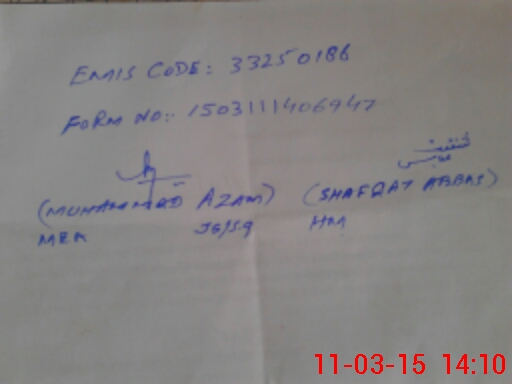 EMIS CODE: 33250186
FORM NO:- 1503111406947
شفقت عباس
(MUHAMMAD AZAM) (SHAFQAT ABBAS)
MEA HM
11-03-15 14:10